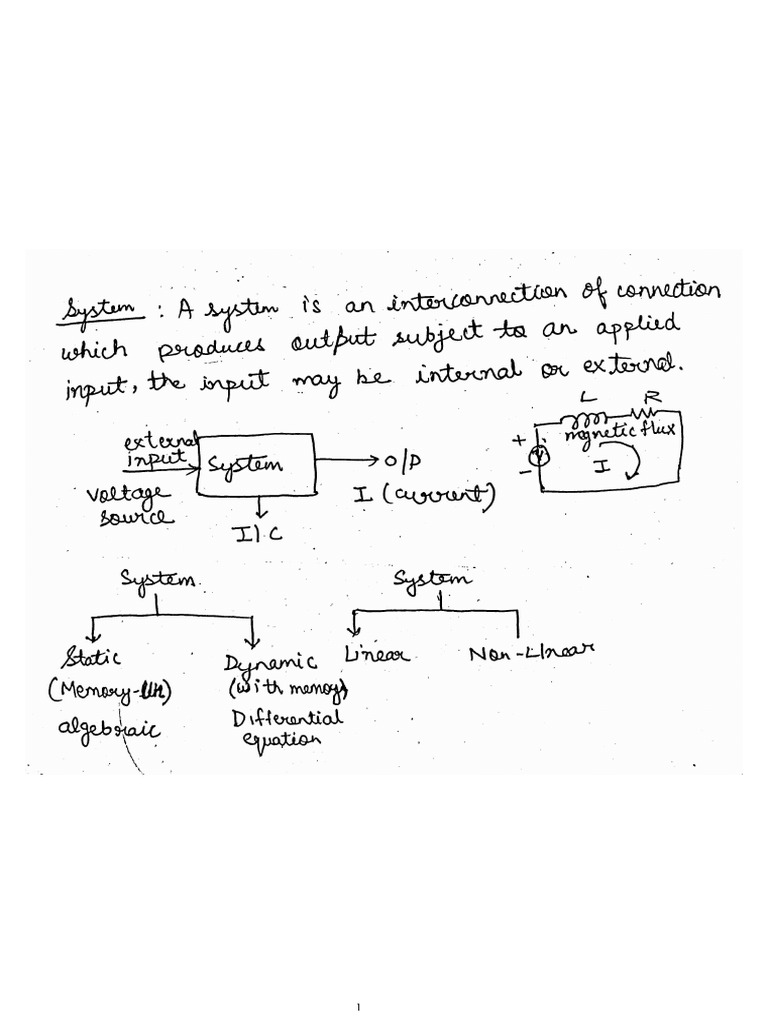 System : A system is an interconnection of connection
which produces output subject to an applied
input, the input may be internal or external.
external
input
System
O/P
voltage
source
I (current)
I/C
L R
+
magnetic flux
V
-
I
System
Static
(Memory-
algebraic
Dynamic
(with memory)
Differential
equation
System
Linear
Non-Linear
1